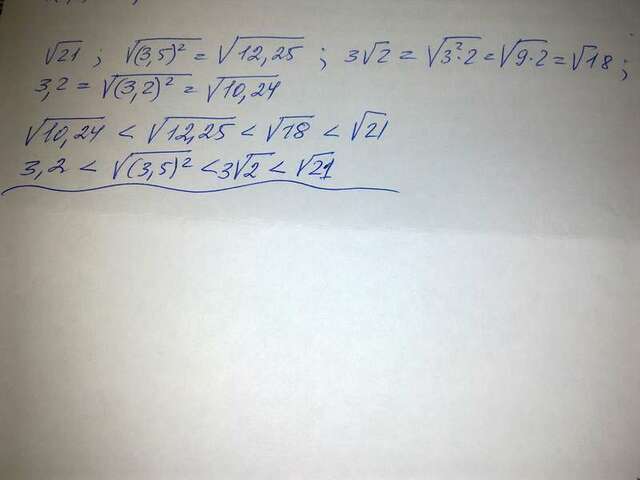 √21 ; √(3,5)² = √12,25 ; 3√2 = √3²·2 = √9·2 = √18 ;
3,2 = √(3,2)² = √10,24
√10,24 < √12,25 < √18 < √21
3,2 < √(3,5)² < 3√2 < √21